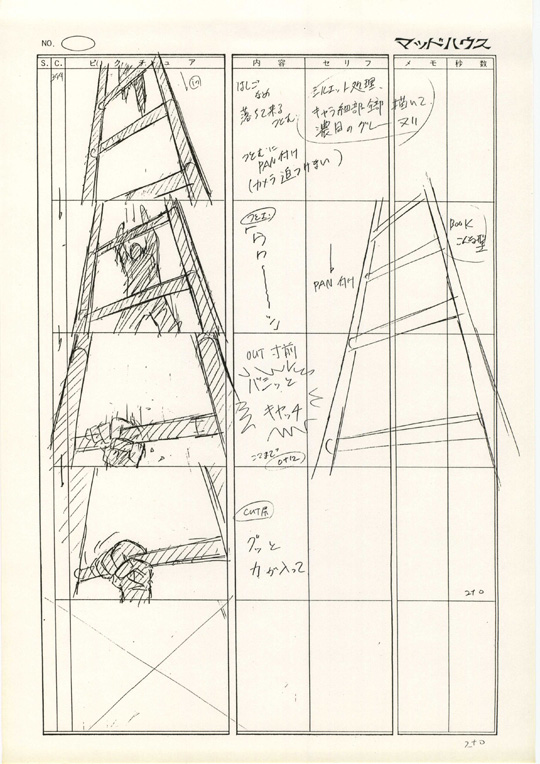 NO.
マッドハウス
S. C. ピクチュア 内容 セリフ メモ 秒数
はしご
なめ
落ちて来る
つとむ
つとむに
PAN付け
(カメラ追つけない)
シルエット処理、
キャラ細部全部描いて、
濃目のグレーヌリ
つとむ
「ワ
ワ
ー
ッ」
PAN付け
BOOK
OUT寸前
バシッと
キャッチ
ここまで
0+12
CUT尻
グッと
力が入って
2+0
2+0